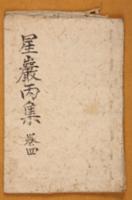 星巖丙集 卷四